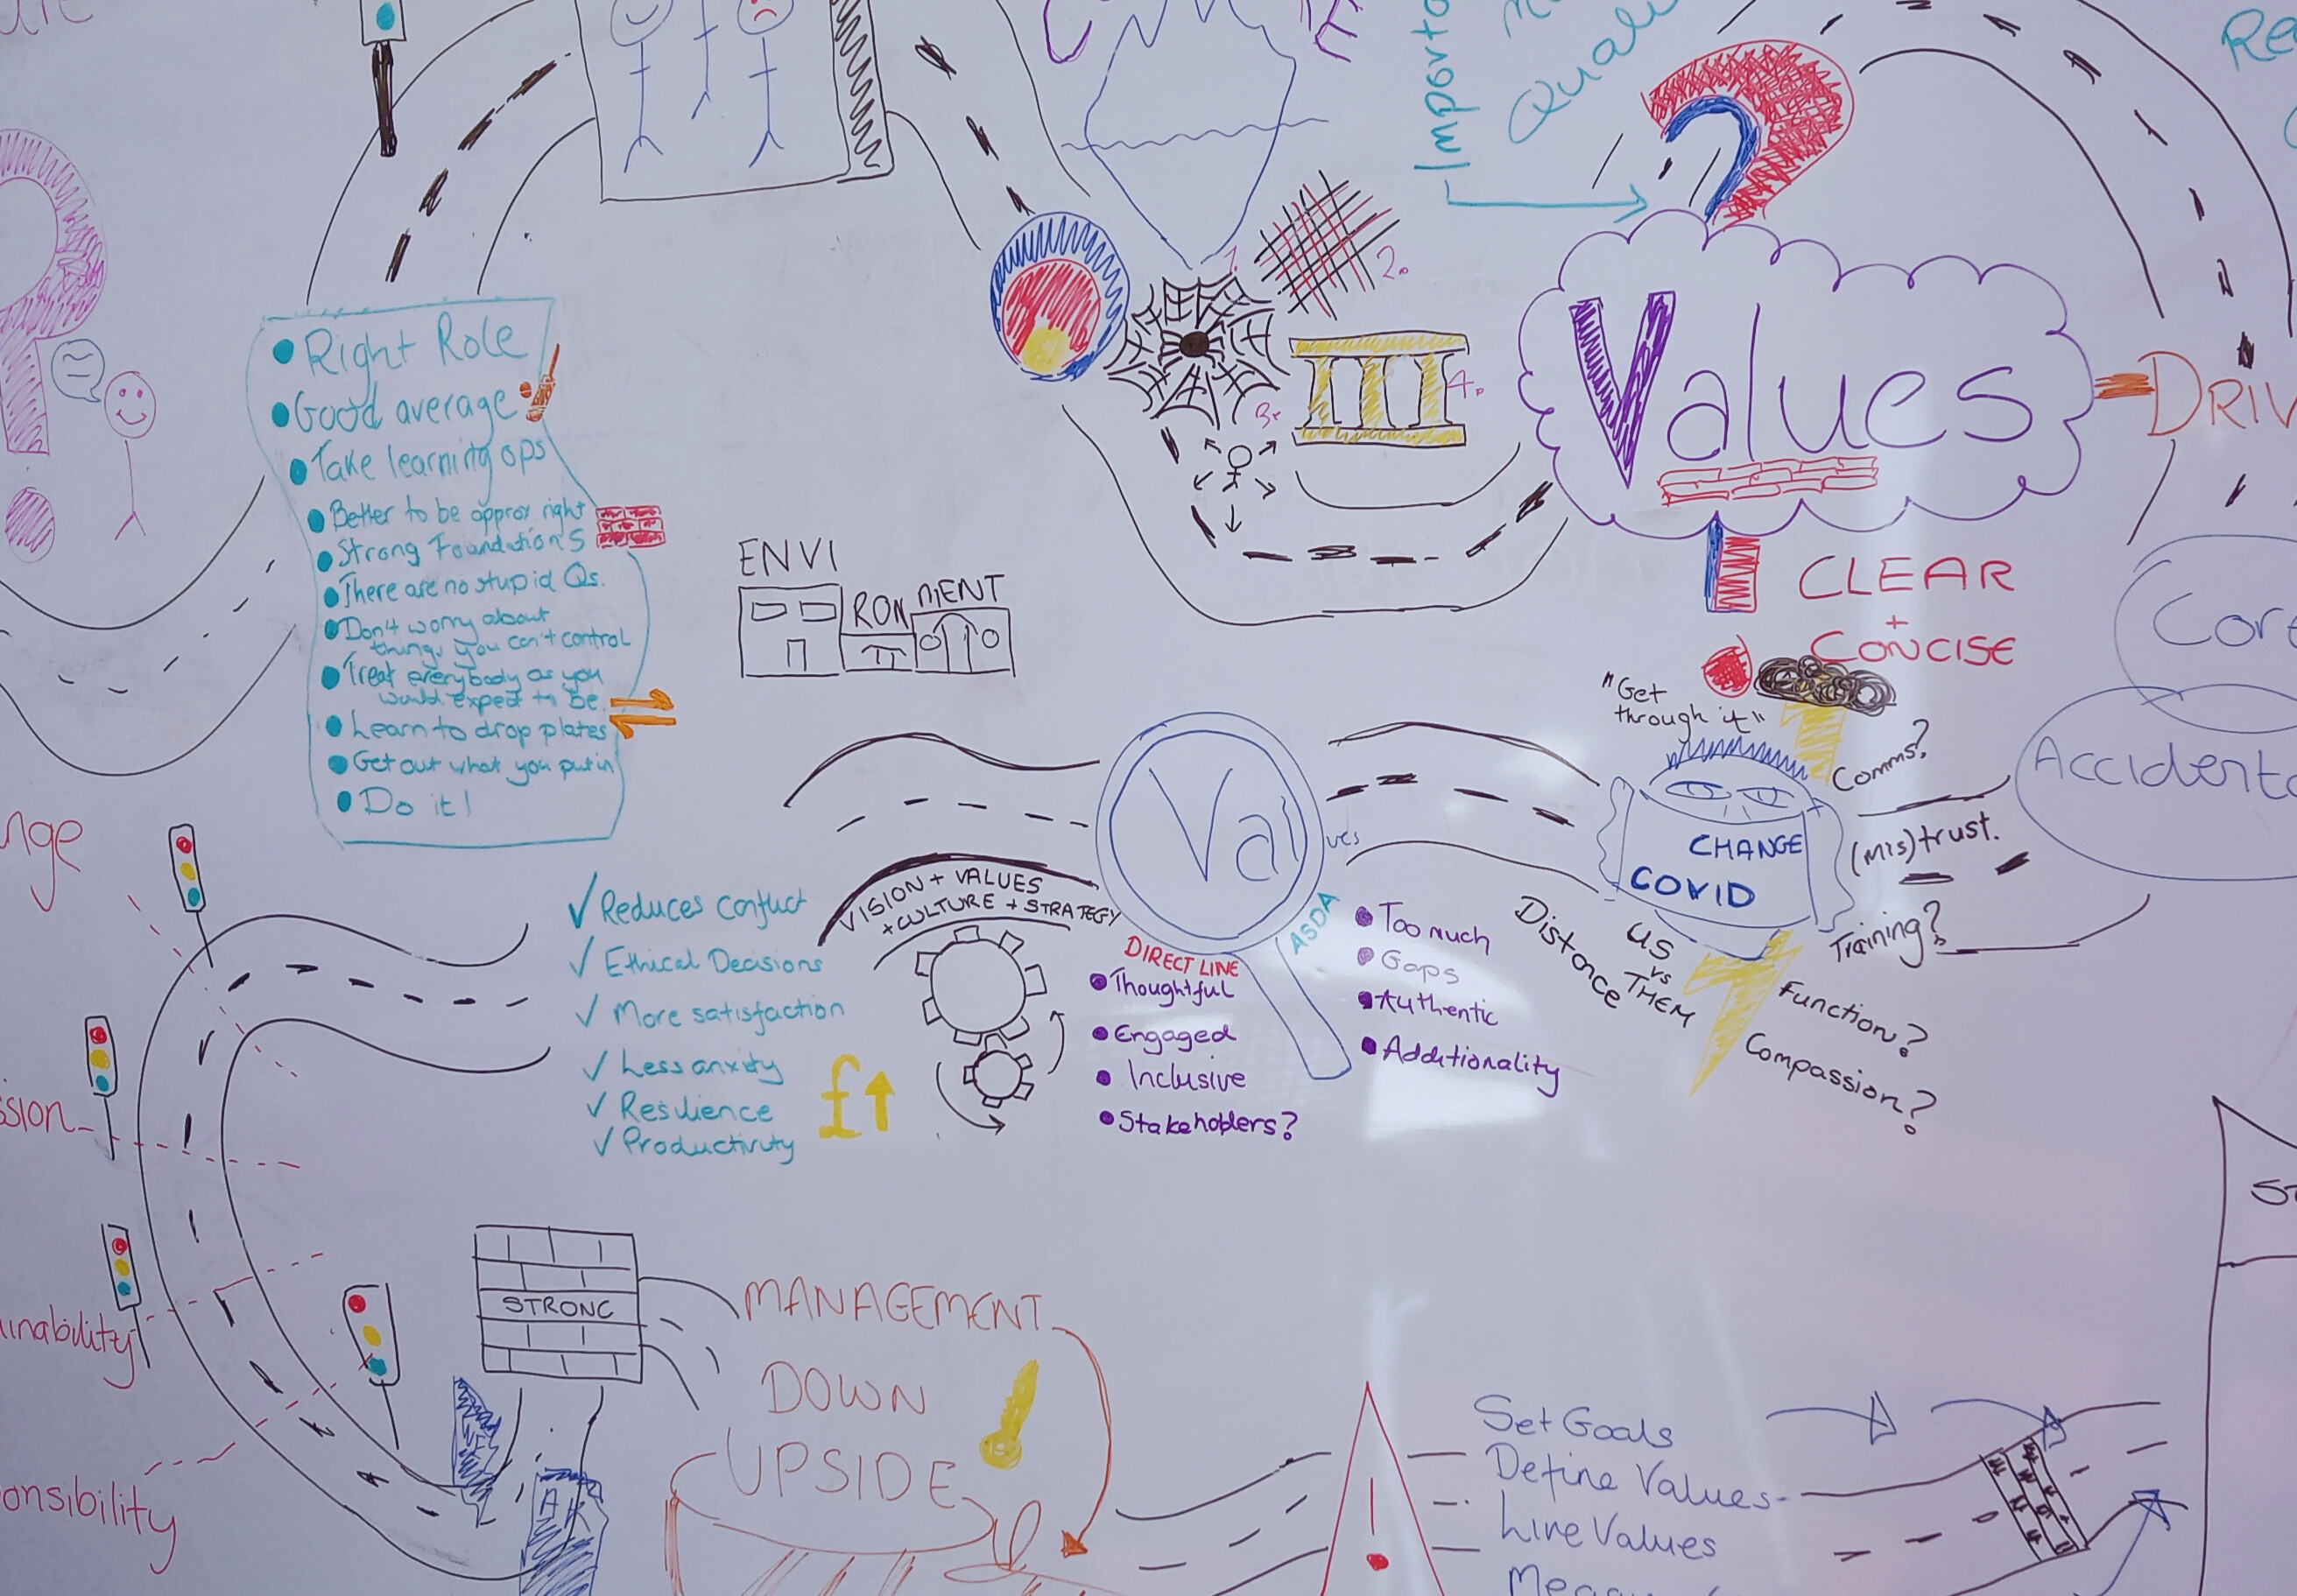 Importa
Quali
Re
1.
2.
3.
4.
Values
DRIV
• Right Role
• Good average
• Take learning ops
• Better to be approx right
• Strong Foundations
• There are no stupid Qs.
• Don't worry about
things you can't control
• Treat everybody as you
would expect to be.
• Learn to drop plates
• Get out what you put in
• Do it!
ENVI
RON
MENT
CLEAR
+
CONCISE
Core
Accidenta
"Get
through it"
Comms?
CHANGE
COVID
(mis)trust.
Training?
Distance
US
vs
THEM
Function?
Compassion?
Val
ues
VISION + VALUES
+ CULTURE + STRATEGY
DIRECT LINE
• Thoughtful
• Engaged
• Inclusive
• Stakeholders?
ASDA
• Too much
• Gaps
• Authentic
• Additionality
✓ Reduces conflict
✓ Ethical Decisions
✓ More satisfaction
✓ Less anxity
✓ Resilience
✓ Productivity
£↑
nge
ssion
ainability
onsibility
STRONG
MANAGEMENT
DOWN
UPSIDE
!
Set Goals
Define Values
Live Values
Measu
ST